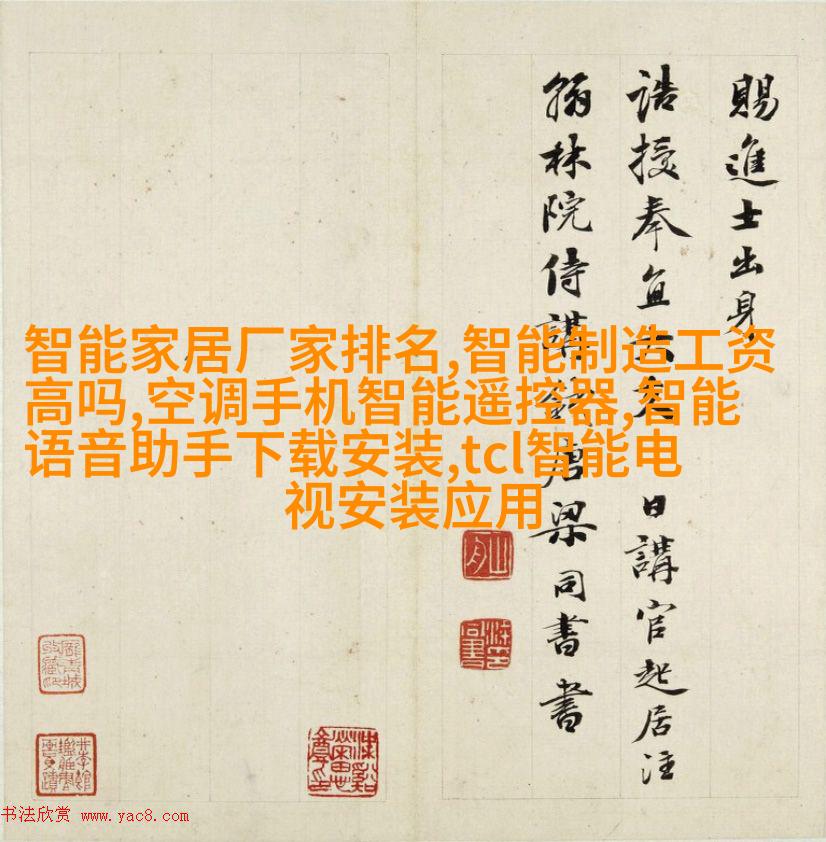 賜進士出身
誥授奉直大夫日講官起居注
翰林院侍講錢唐梁同書書
智能家居厂家排名,智能制造工资
高吗,空调手机智能遥控器,智能
语音助手下载安装,tcl智能电
视安装应用
书法欣赏 www.yac8.com